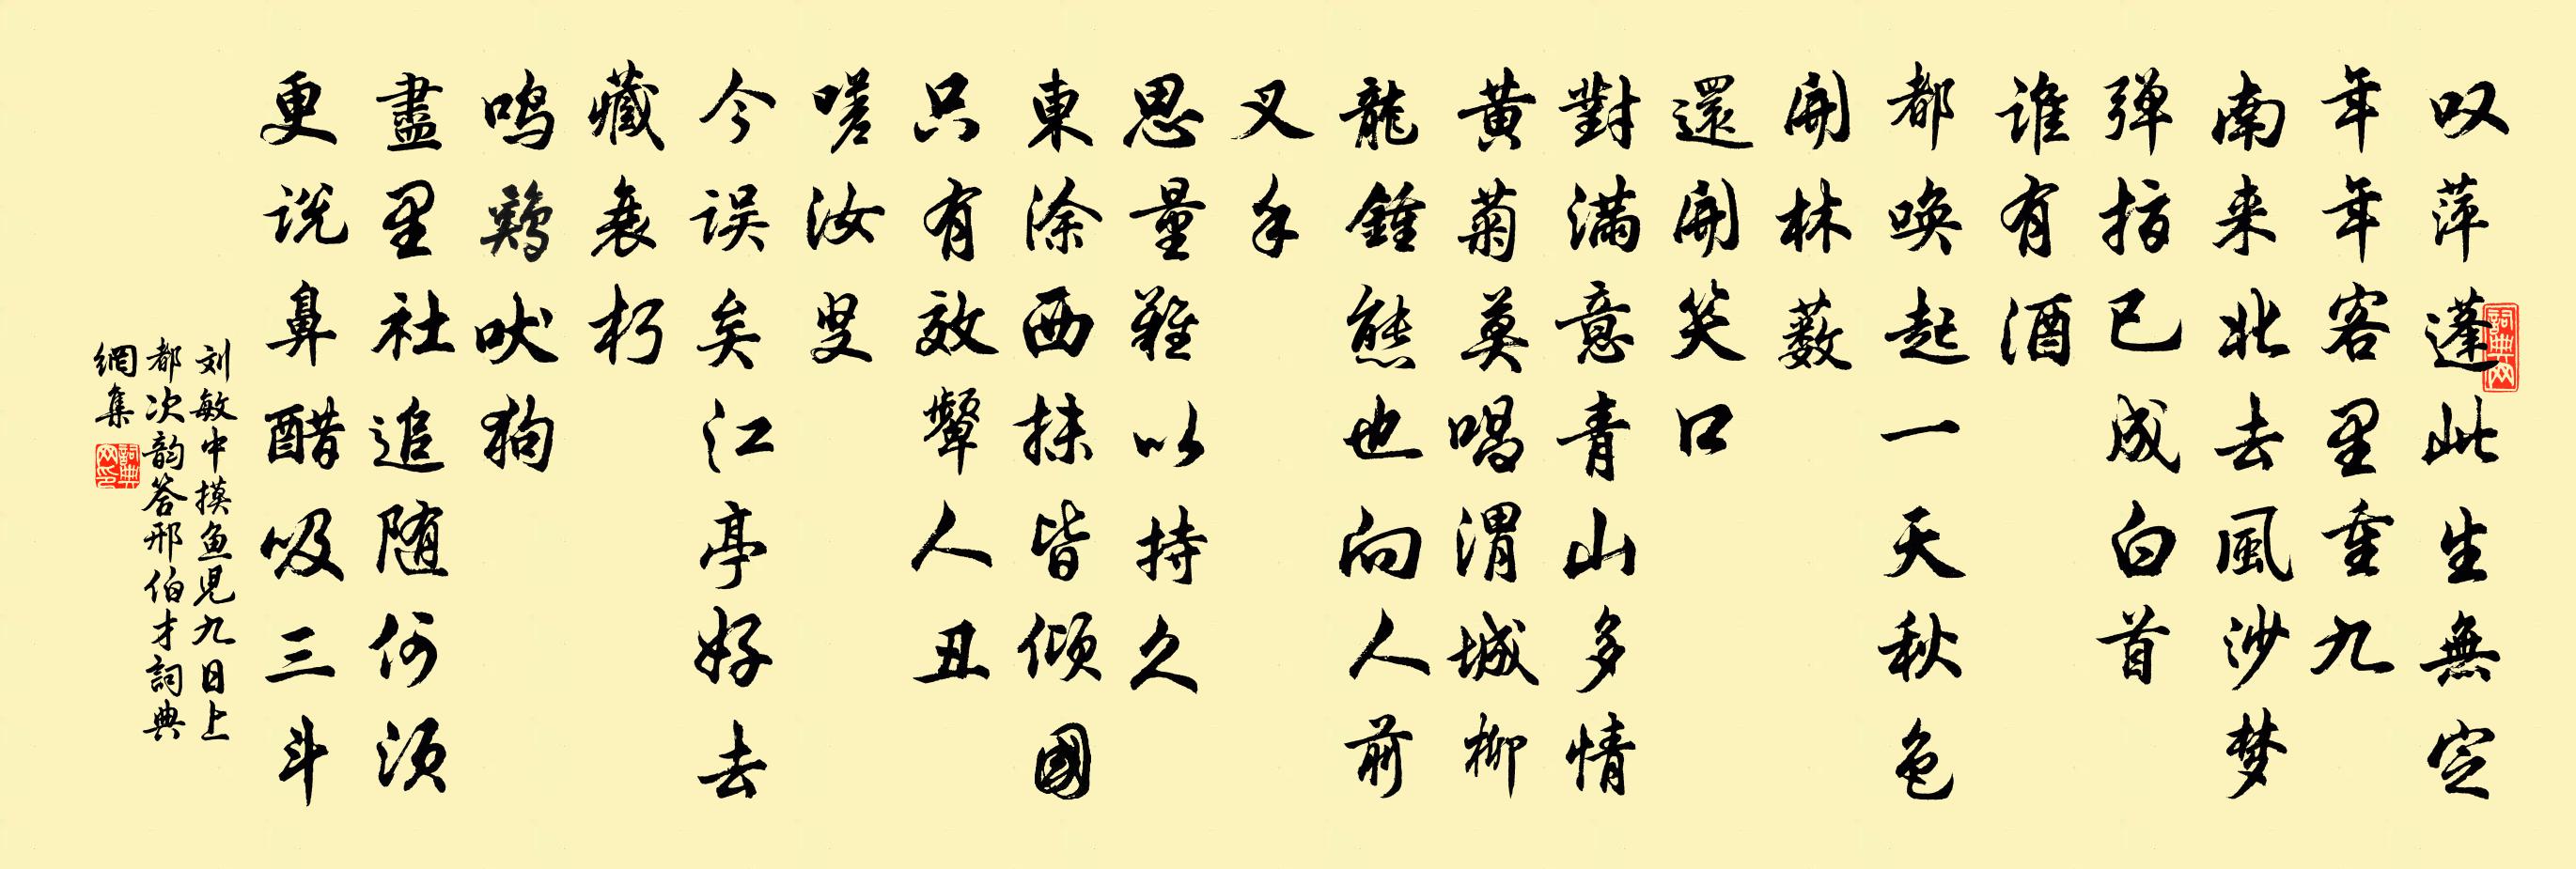 叹萍蓬此生無定
年年客里重九
南来北去風沙梦
弹指已成白首
谁有酒
都唤起一天秋色
開林薮
還開笑口
對满意青山多情
黄菊莫唱渭城柳
龍鍾態也向人前
叉手
思量难以持久
東涂西抹皆倾國
只有效颦人丑
嗟汝叟
今误矣江亭好去
藏衰朽
鸣鶏吠狗
盡里社追随何须
更说鼻醋吸三斗
刘敏中摸鱼児九日上
都次韵答邢伯才詞典
網集